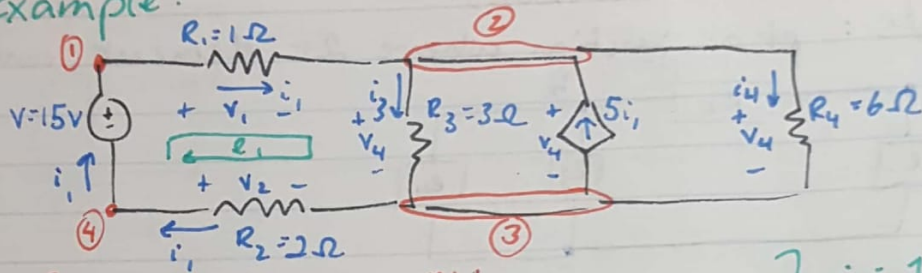 Example:
① R₁=1Ω ②
V=15V + - + V₁ - i₁ i₃ + V₄ - R₃=3Ω + V₄ - 5i₁ i₄ + V₄ - R₄=6Ω
e₁
i₁ + V₂ -
④ i₁ R₂=2Ω ③